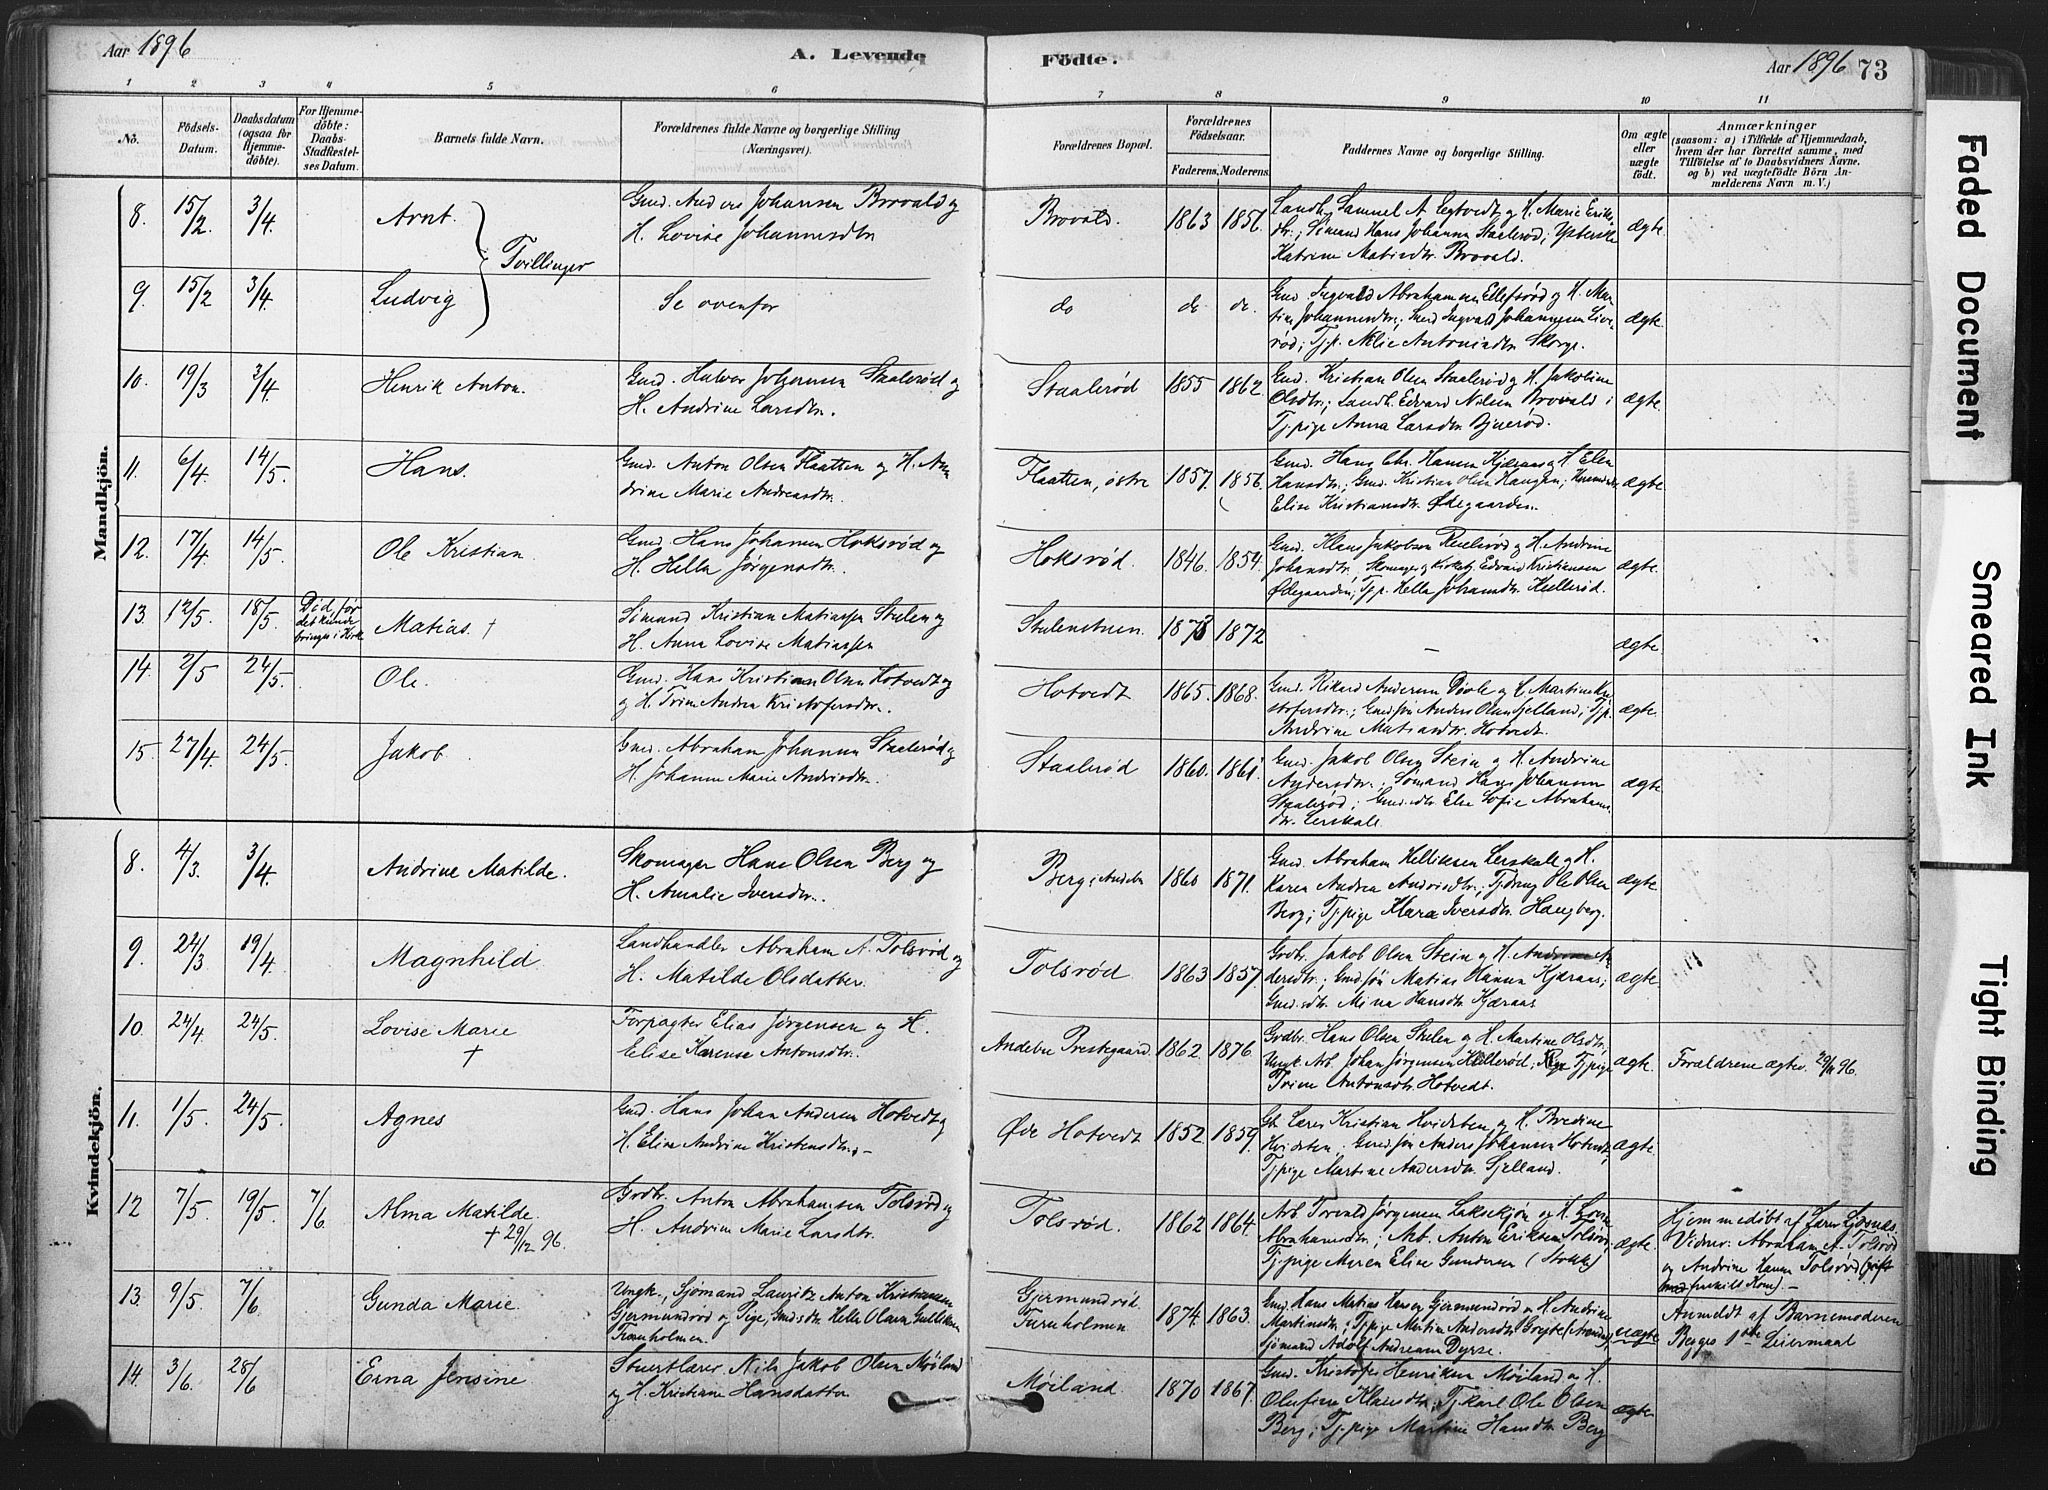 Aar 1896
A. Levende Födte.
Aar 1896 73
1 2 3 4 5 6 7 8 9 10 11
No.
Födsels-Datum.
Daabsdatum (ogsaa for Hjemme-döbte).
For Hjemme-döbte: Daabs-Stadfæstel-ses Datum.
Barnets fulde Navn.
Forældrenes fulde Navne og borgerlige Stilling (Næringsvei).
Forældrenes Bopæl.
Forældrenes Födselsaar.
Faderens. Moderens.
Faddernes Navne og borgerlige Stilling.
Om ægte eller uægte födt.
Anmærkninger
(saasom: a) i Tilfælde af Hjemmedaab,
hvem der har forrettet samme, med
Tilföielse af to Daabsvidners Navne.
og b) ved uægtefödte Börn An-
melderens Navn m. V.)
Mandkjön.
8. 15/2 3/4 Arnt. Tvillinger
Gmd. Anders Johansen Brovald og
H. Lovise Johannesdtr
Brovald. 1863 1856.
Landh. Samuel A. og H. Marie Erik-
dtr.; Sömand Hans Johansen Staalerød;
Katrine Matisdtr. Brovald.
ægte
9. 15/2 3/4 Ludvig
Se ovenfor
do do do.
Gmd. Ingvald Abrahamsen Ellefsrød og H. Mar-
tine Johannesdtr.; Ingvald Johannesen Live-
rød; Tj.p. Antonisdtr Skorge.
ægte.
10. 19/3 3/4 Henrik Anton.
Gmd. Halvor Johansen Staalerød og
H. Andrine Larsdtr.
Staalerød 1855 1862.
Gmd. Kristian Olsen Staalerød og H. Jakoline
Olsdtr.; Landh. Edvard Nilsen Brovald;
Tj.pige Anna Larsdtr Bjuerød.
ægte.
11. 6/4 14/5 Hans.
Gmd. Anton Olsen Flaatten og H. An-
drine Marie Andreasdtr.
Flaatten, østre 1857. 1856.
Gmd. Hans Chr. Hansen Kjæraas og H. Elen
Hansdtr.; Gmd. Kristian Olsen Haugen;
Elise Kristiansdtr. Ødegaarden.
ægte
12. 17/4 14/5 Ole Kristian.
Gmd. Hans Johansen Hoksrød og
H. Hella Jörgensdtr.
Hoksrød. 1846. 1854.
Gmd. Klaus Jakobsen og H. Andrine
Johansdtr, Skomager og Kirketj. Edvard Kristiansen
Ødegaarden; Tj.p. Hella Johansdtr. Hellerød.
ægte.
13. 12/5 18/5. Död, før det kunde bringes i Kirke
Matias. †
Sömand Kristian Matiassen Stulen og
H. Anna Lovise Matiassen
Stulenstuen. 1873 1872 –
ægte.
14. 2/5 24/5. Ole.
Gmd. Hans Kristian Olsen Hotvedt og
og H. Trine Andrea Kristofersdtr.
Hotvedt 1865. 1868.
Gmd. Rikard Andersen Døvle og H. Martine Kri-
stofersdtr.; Gmd.søn Anders Olsen Sjelland; Tj.p.
Andrine Matisdtr. Hotvedt.
ægte.
15. 27/4. 24/5. Jakob.
Gmd. Abraham Johansen Staalerød og
H. Johanne Marie Andrisdtr.
Staalerød 1860. 1861
Gmd. Jakob Olsen Stein og H. Andrine
Andersdtr.; Sömand Hans Johansen
Staalerød; Gmd.sdtr. Else Sofie Abrahams
dtr. Lerskall.
ægte.
Kvindekjön.
8. 4/3. 3/4. Andrine Matilde.
Skomager Hans Olsen Berg og
H. Amalie Iversdtr.
Berg i Andebu 1860 1871.
Gmd. Abraham Helliksen Lerskall og H.
Karen Andrea Andrisdtr.; Tj.dreng Ole Olsen
Berg; Tj.pige Klara Iversdtr. Haugberg.
ægte.
9. 24/3 19/4. Magnhild
Landhandler Abraham A. Tolsrød og
H. Matilde Olsdatter.
Tolsrød 1863 1857
Grdbr. Jakob Olsen Stein og H. Andrine An-
dersdtr.; Gmd.søn Matias Hansen Kjæraas;
Gmd.sdtr. Mina Hansdtr. Kjæraas
ægte.
10. 24/4. 24/5. Lovise Marie †
Forpagter Elias Jörgensen og H.
Elise Karense Antonsdtr.
Andebu Prestegaard. 1862. 1876.
Grdbr. Hans Olsen Stulen og H. Martine Olsdtr;
Ungk. Arb. Johan Jörgensen Hellerød; Tj.pige
Trine Antonsdtr Hotvedt.
ægte. Forældrene ægtev. 96.
11. 1/5. 24/5. Agnes
Gmd. Hans Johan Andersen Hotvedt og
H. Eline Andrine Kristensdtr. –
Øde Hotvedt 1852. 1859.
Kristian Hvidsten og H. Bredine
Hvidsten; Gmd.søn Anders Johansen Hotvedt;
Tj.pige Martine Andersdtr. Sjelland.
ægte.
12 7/5. 19/5. 7/6 Alma Matilde. † 29/12 96.
Grdbr. Anton Abrahamsen Tolsrød og
H. Andrine Marie Larsdtr.
Tolsrød. 1862 1864.
Arb. Torvald Jörgensen og H.
Abrahamsdtr; Arb. Anton Eriksen Tolsrød;
Tj.pige Maren Elise Gundersen (Stokke)
ægte.
Hjemmedøbt af Lærer
Vidner: Abraham A. Tolsrød
og Andrine Tolsrød (gift
med frenskilt Kone). –
13. 9/5. 7/6. Gunda Marie.
Ungk., Sjömand Lauritz Anton Kristiansen
Gjermundrød og Pige, Gmdsdtr. Helle Olava Gulliksen
Furuholmen.
Gjermundrød. Furuholmen 1874. 1863.
Gmd. Hans Matias Hansen Gjermundrød og H. Andrine
Martinsdtr; Tj.pige Andersdtr.
Sjömand Adolf Andreasen Dyrsø.
uægte
Anmeldt af Barnemoderen
Begges 1ste Leiermaal
14. 3/6. 28/6 Erna Jensine
Nils Jakob Olsen Møiland
og H. Kristiane Hansdatter
Møiland 1870 1867.
Gmd. Kristofer Henriksen Møiland og H.
Olufine Klausdtr; Tj.karl Ole Olsen
Berg; Tj.pige Martine Hansdtr Berg
ægte
Faded Document
Smeared Ink
Tight Binding